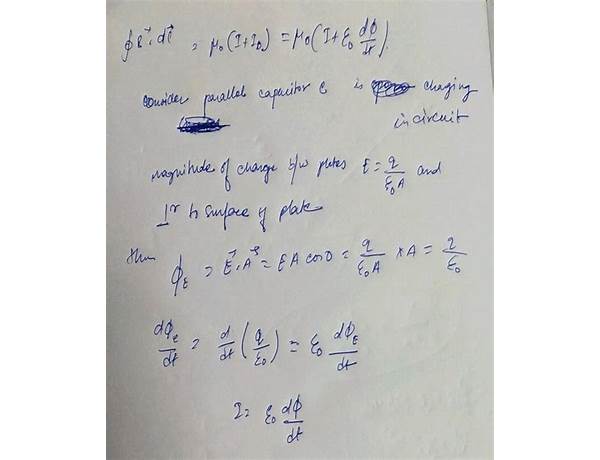 ∮ E⃗ . dl⃗ = μ₀ (I + I_D) = μ₀ (I + ε₀ dϕ/dt).
consider parallel capacitor C is charging
in circuit
magnitude of charge b/w plates E = q/ε₀A and
⊥r to surface of plate
then ϕ_E = E⃗ . A⃗ = EA cos0 = q/ε₀A × A = q/ε₀
dϕ_E/dt = d/dt (q/ε₀) = ε₀ dϕ_E/dt
I = ε₀ dϕ/dt